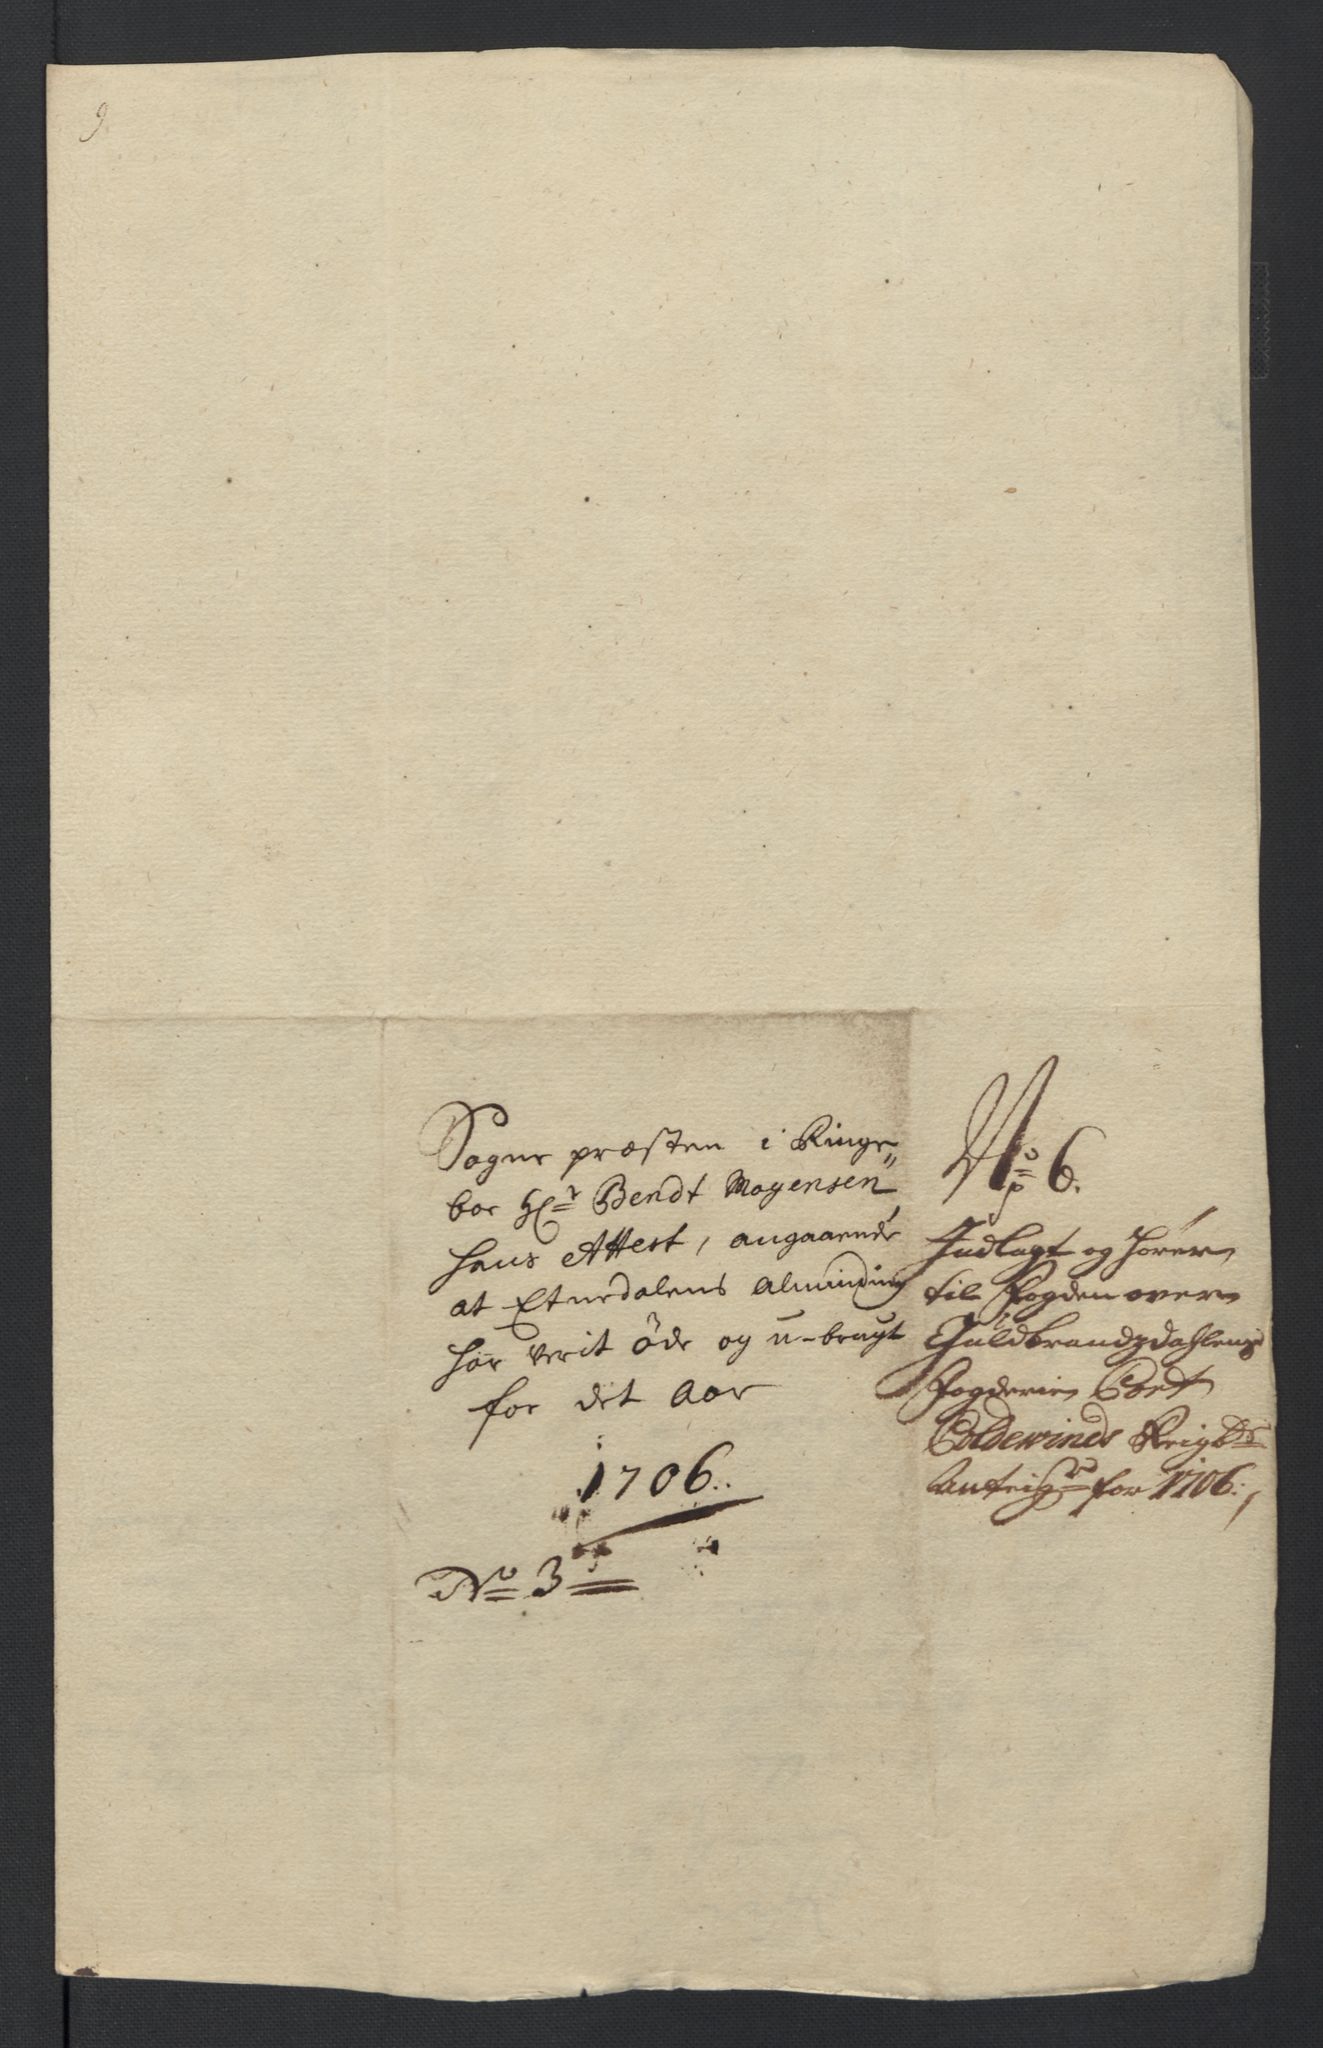 9
Sogne præsten i Ringe"
boe Hr Bendt Mogensen
hans Attest, angaaende
at Etnedalens Alminding
har verit öde og u-brugt
for det Aar
1706.
No 3
No 6.
Indlagt og hörer
til Fogden over
Guldbrandzdahlens
Fogderie
Coldevinds
for 1706.